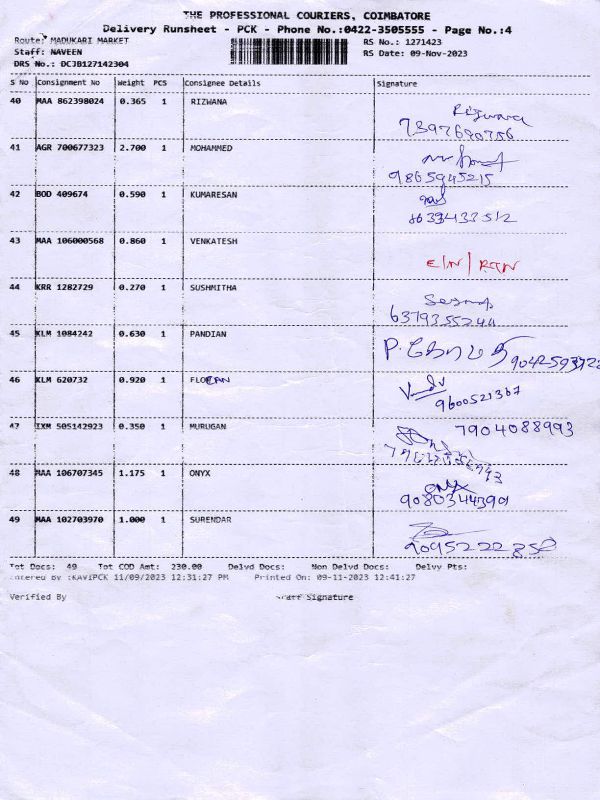 THE PROFESSIONAL COURIERS, COIMBATORE
Delivery Runsheet - PCK - Phone No.:0422-3505555 - Page No.:4
Route: MADUKARI MARKET RS No.: 1271423
Staff: NAVEEN RS Date: 09-Nov-2023
DRS No.: DCJB127142304
S No Consignment No Weight PCS Consignee Details Signature
40 MAA 862398024 0.365 1 RIZWANA Rizwana
7397690756
41 AGR 700677323 2.700 1 MOHAMMED
9865945215
42 BOD 409674 0.590 1 KUMARESAN
8633433512
43 MAA 106000568 0.860 1 VENKATESH E/N/RTN
44 KRR 1282729 0.270 1 SUSHMITHA
6379355244
45 KLM 1084242 0.630 1 PANDIAN
46 KLM 620732 0.920 1
9600521367
47 IXM 505142923 0.350 1 MURUGAN 7904088993
48 MAA 106707345 1.175 1 ONYX ONYX
9080344390
49 MAA 102703970 1.000 1 SURENDAR
Tot Docs: 49 Tot COD Amt: 230.00 Delvd Docs: Non Delvd Docs: Delvy Pts:
Entered by :KAVIPCK 11/09/2023 12:31:27 PM Printed On: 09-11-2023 12:41:27
Verified By Staff Signature